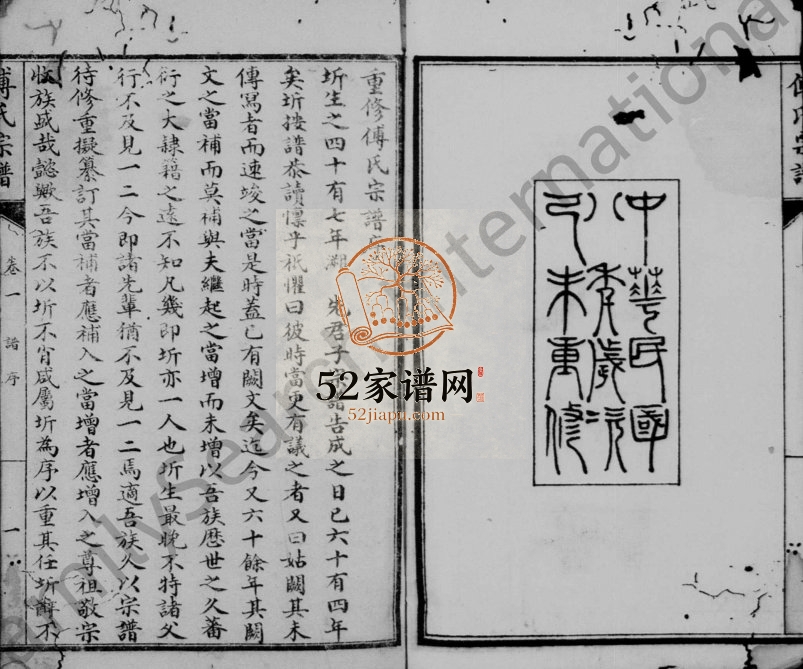 傅氏宗譜
中華民國
年歲次
己未重修
重修傅氏宗譜序
圻生之四十有七年溯 先君子宗譜告成之日已六十有四年
矣圻按譜恭讀懍乎祇懼曰彼時當更有議之者又曰姑闕其未
傳寫者而速竣之當是時蓋已有闕文矣迄今又六十餘年其闕
文之當補而莫補與夫繼起之當增而未增以吾族歷世之久蕃
衍之大隸籍之遠不知凡幾即圻亦一人也圻生最晚不特諸父
行不及見一二今即諸先輩猶不及見一二焉適吾族久以宗譜
待修重擬纂訂其當補者應補入之當增者應增入之尊祖敬宗
收族盛哉懿歟吾族不以圻不肖咸屬圻為序以重其任圻辭不
傅氏宗譜
卷一 譜序
一
52家谱网
52jiapu.com
FamilySearch International